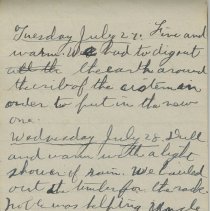 Tuesday July 27. Fine and
warm. We had to dig out
all th the earth around
the crib of the cistern in
order to put in the new
one.
Wednesday July 28. Dull
and warm with a light
shower of rain. We hauled
out timber for the rack
helping Uncle